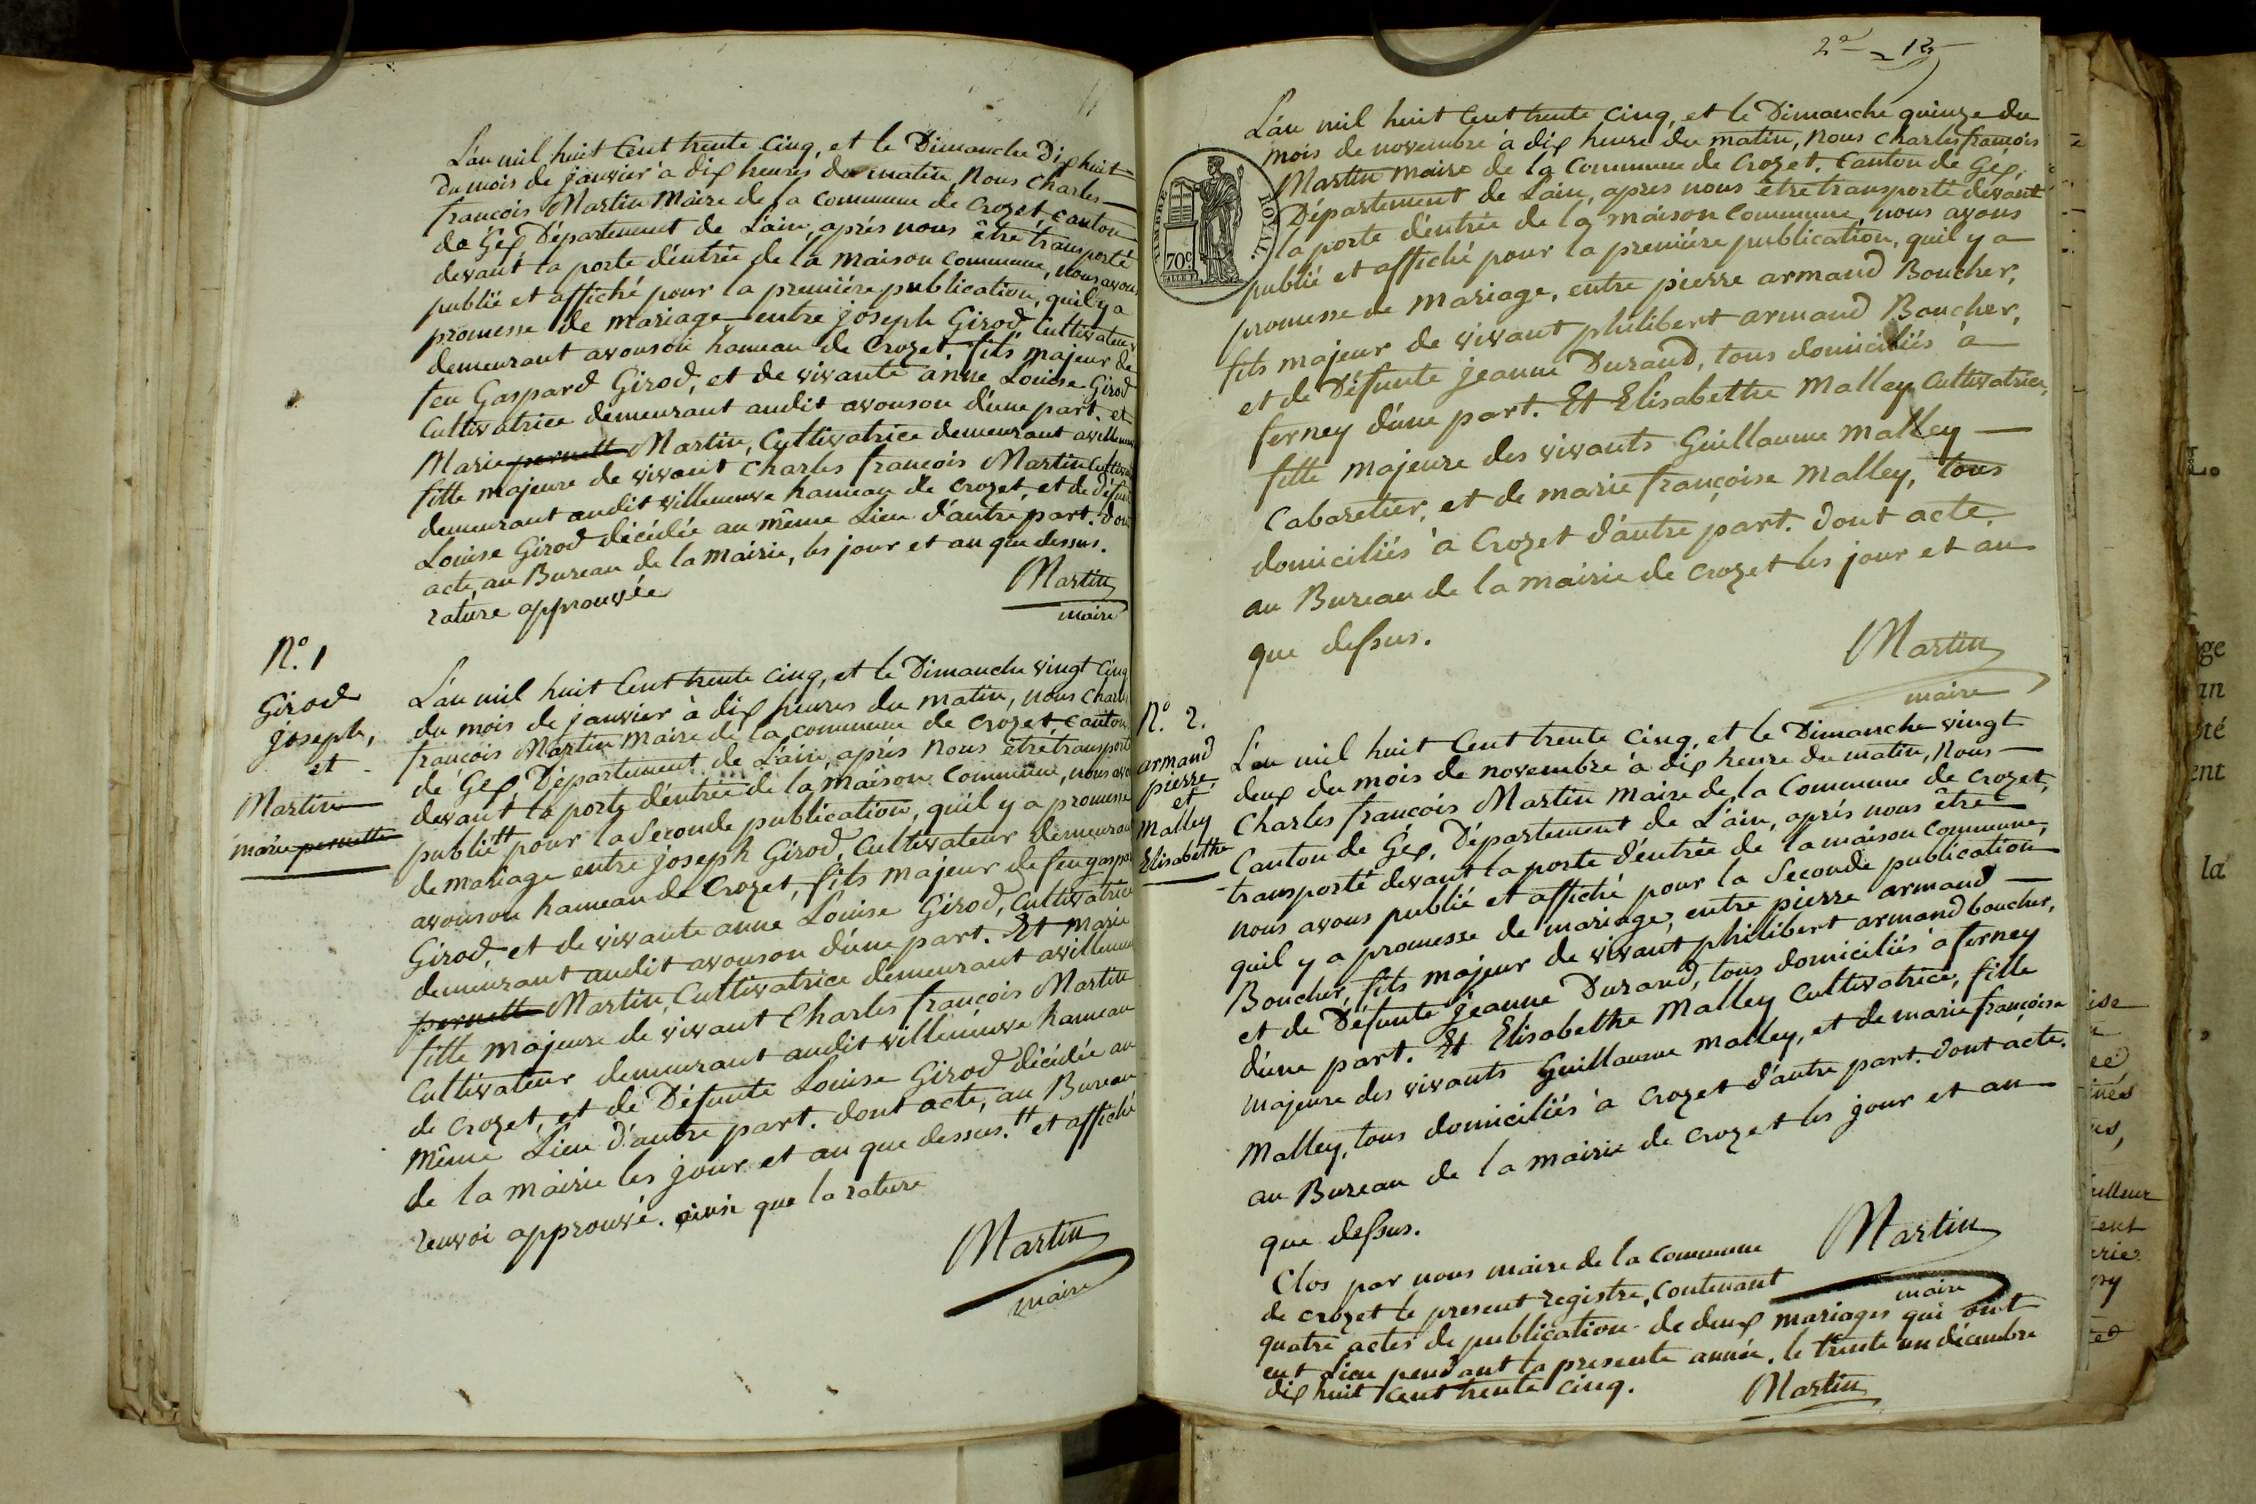 L'an mil huit cent trente cinq, et le Dimanche Dixhuit
du mois de janvier à dix heures du matin, Nous Charles
françois Martin Maire de la commune de Crozet, canton
de Gex Département de L'ain, après nous être transporté
devant la porte d'entrée de la maison commune, nous avons
publié et affiché pour la première publication, qu'il y a
promesse de mariage entre joseph Girod, Cultivateur
demeurant avouson hameau de Crozet, fils majeur de
feu Gaspard Girod, et de vivante anne Louise Girod
Cultivatrice demeurant audit avouson d'une part. et
Marie pernette Martin, Cultivatrice demeurant avilleneuve
fille majeure de vivant Charles françois Martin Cultiva
demeurant audit villeneuve hameau de Crozet, et de défunte
Louise Girod décédée au même Lieu d'autre part. dont
acte, au Bureau de la Mairie, les jour et an que dessus.
rature approuvée
Martin
maire
N.o 1
Girod
joseph,
et
Martin
marie pernette
L'an mil huit Cent trente cinq, et le Dimanche vingt cinq
du mois de janvier à dix heures du matin, nous Charles
françois Martin Maire de la commune de Crozet, canton
de Gex, Département de L'ain, après Nous être transporté
devant la porte d'entrée de la Maison Commune, nous avons
publié # pour la Seconde publication, qu'il y a promesse
de mariage entre joseph Girod, Cultivateur demeurant
avouson hameau de Crozet, fils majeur de feu gaspard
Girod, et de vivante anne Louise Girod, Cultivatrice
demeurant audit avouson d'une part. Et Marie
pernette Martin, Cultivatrice demeurant avilleneuve
fille majeure de vivant Charles françois Martin
Cultivateur demeurant audit villeneuve hameau
de Crozet, et de Défunte Louise Girod décédée au
Même Lieu d'autre part. dont acte, au Bureau
de la Mairie les jour et an que dessus. # et affiché
renvoi approuvé. ainsi que la rature
Martin
maire
2e 12
TIMBRE ROYAL.
70c
L'an mil huit Cent trente cinq, et le Dimanche quinze du
mois de novembre à dix heure du matin, Nous Charles françois
Martin maire de la Commune de Crozet, Canton de Gex,
Département de Lain, apres nous être transporté devant
la porte d'entrée de la maison Commune, nous avons
publié et affiché pour la première publication, qu'il y a
promesse de mariage, entre pierre armand Boucher,
fils majeur de vivant philibert armand Boucher,
et de Défunte jeanne Durand, tous domiciliés à
ferney d'une part. Et Elisabethe Malley Cultivatrice,
fille majeure des vivants Guillaume Malley
Cabaretier, et de marie françoise Malley, tous
domiciliés à Crozet d'autre part. dont acte.
au Bureau de la mairie de crozet les jour et an
que dessus.
Martin
maire
N.o 2.
armand
pierre
et
Malley
Elisabethe
L'an mil huit Cent trente cinq, et le Dimanche vingt
deux du mois de novembre à dix heure du matin, Nous
Charles françois Martin Maire de la Commune de Crozet,
Canton de Gex, Département de L'ain, après nous être
transporté devant la porte d'entrée de la maison Commune,
nous avons publié et affiché pour la Seconde publication
qu'il y a promesse de mariage, entre pierre armand
Boucher, fils majeur de vivant philibert armand boucher,
et de Défunte jeanne Durand, tous domiciliés a ferney
d'une part. Et Elisabethe Malley Cultivatrice, fille
majeure des vivants Guillaume Malley, et de marie françoise
Malley, tous domiciliés à Crozet d'autre part. dont acte.
au Bureau de la mairie de crozet les jour et an
que dessus.
Martin
maire
Clos par nous maire de la Commune
de crozet le present registre, contenant
quatre actes de publication de deux mariages qui ont
eut Lieu pendant la presente année. le trente un décembre
dix huit cent trente cinq.
Martin